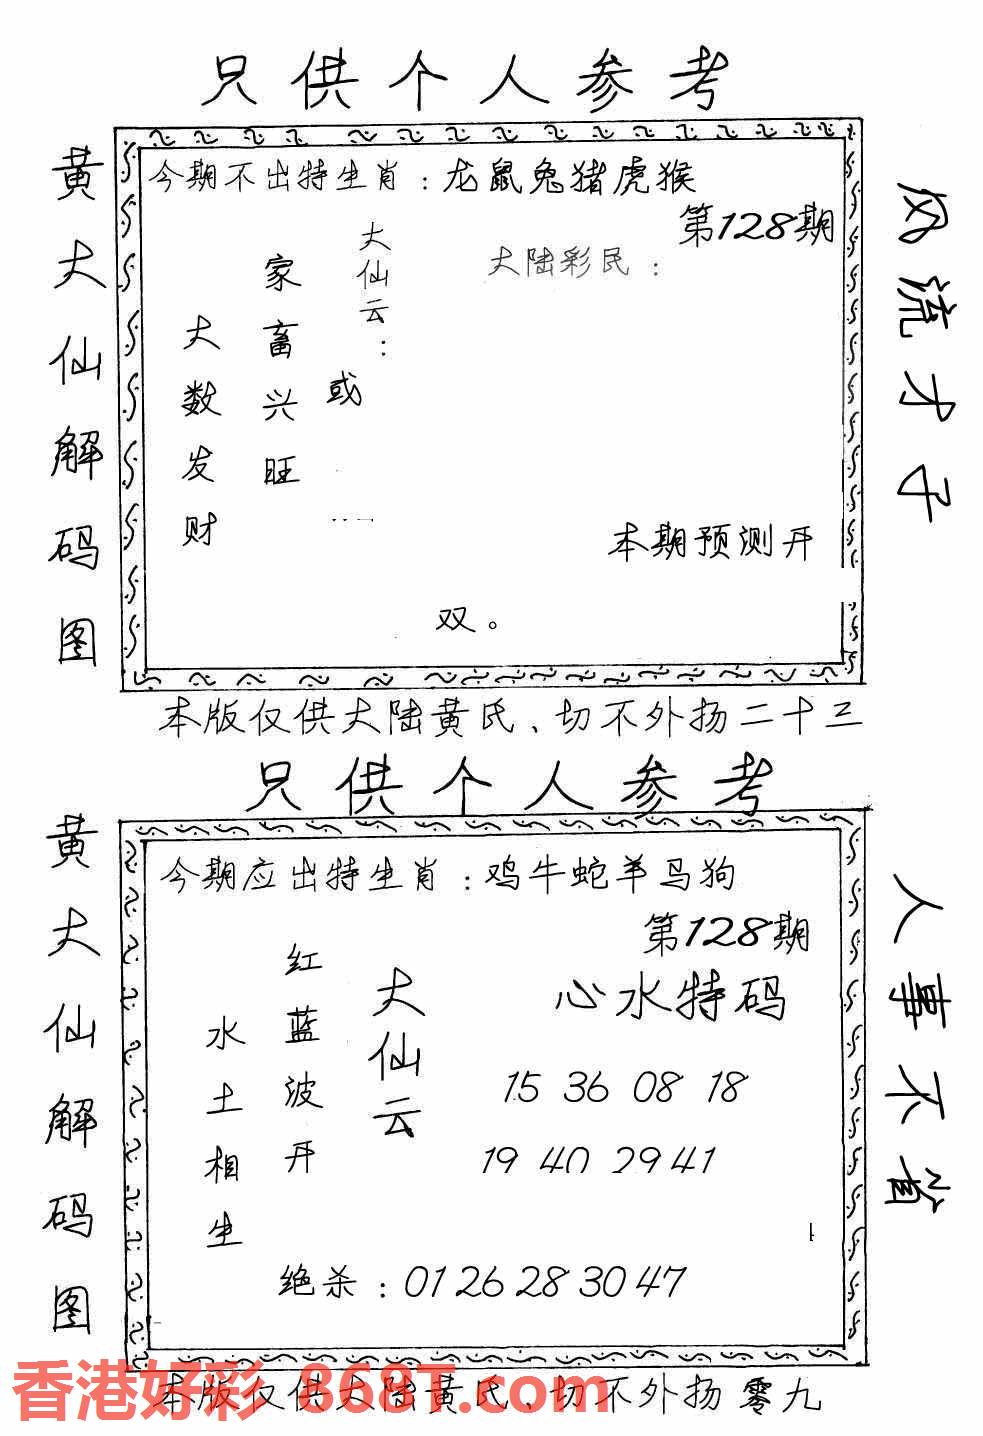 只供个人参考
黄大仙解码图
今期不出特生肖：龙鼠兔猪虎猴
第128期
大仙云：
大陆彩民：
家畜兴旺
或
大数发财
本期预测开
双。
风流才子
本版仅供大陆黄氏、切不外扬二十三
只供个人参考
黄大仙解码图
今期应出特生肖：鸡牛蛇羊马狗
第128期
心水特码
大仙云
红蓝波开
水土相生
15 36 08 18
19 40 29 41
绝杀：01 26 28 30 47
人事不省
本版仅供大陆黄氏、切不外扬零九
香港好彩 868T.com